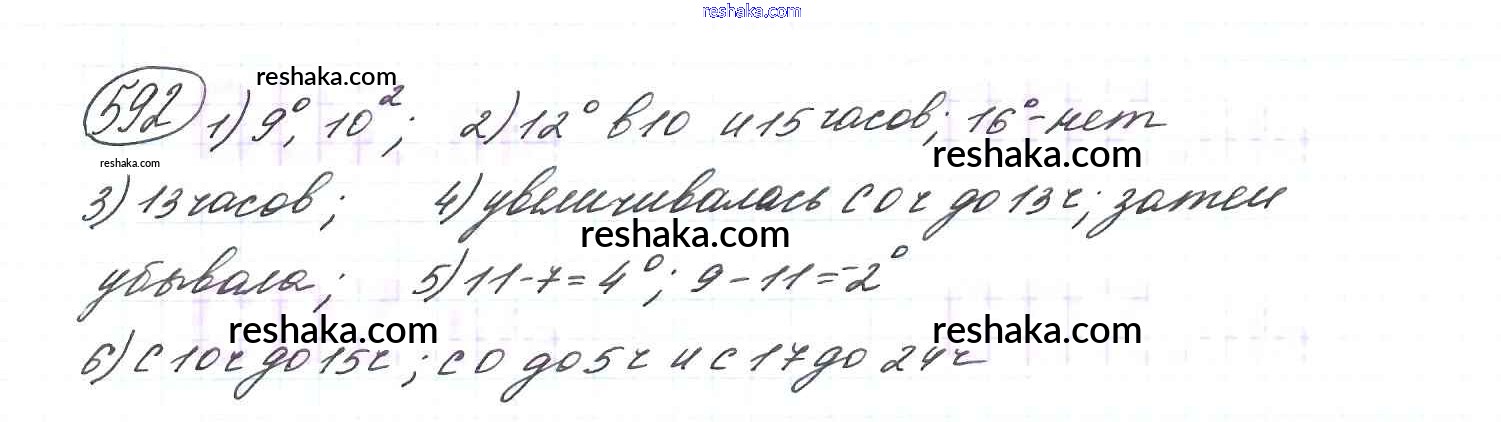 reshaka.com
reshaka.com
592 1) 9°, 10²; 2) 12° в 10 и 15 часов; 16° - нет
reshaka.com
reshaka.com
3) 13 часов; 4) увеличивалась с 0ч до 13ч; затем
reshaka.com
убывала; 5) 11-7=4°; 9-11=-2°
reshaka.com
reshaka.com
6) с 10ч до 15ч; с 0 до 5ч и с 17 до 24ч